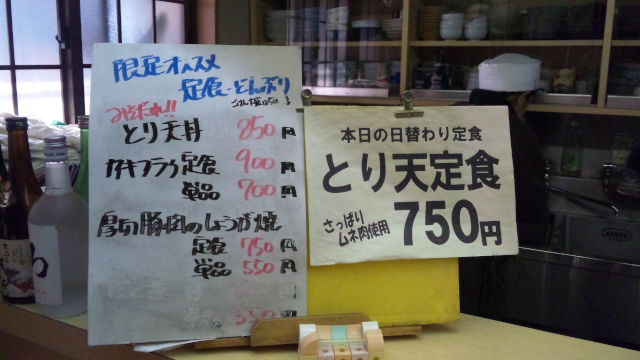 限定オススメ
定食・どんぶり
とり天丼 850円
カキフライ定食 900円
単品 700円
厚切豚肉のしょうが焼
定食 750円
単品 550円
本日の日替わり定食
とり天定食
さっぱり
ムネ肉使用
750円